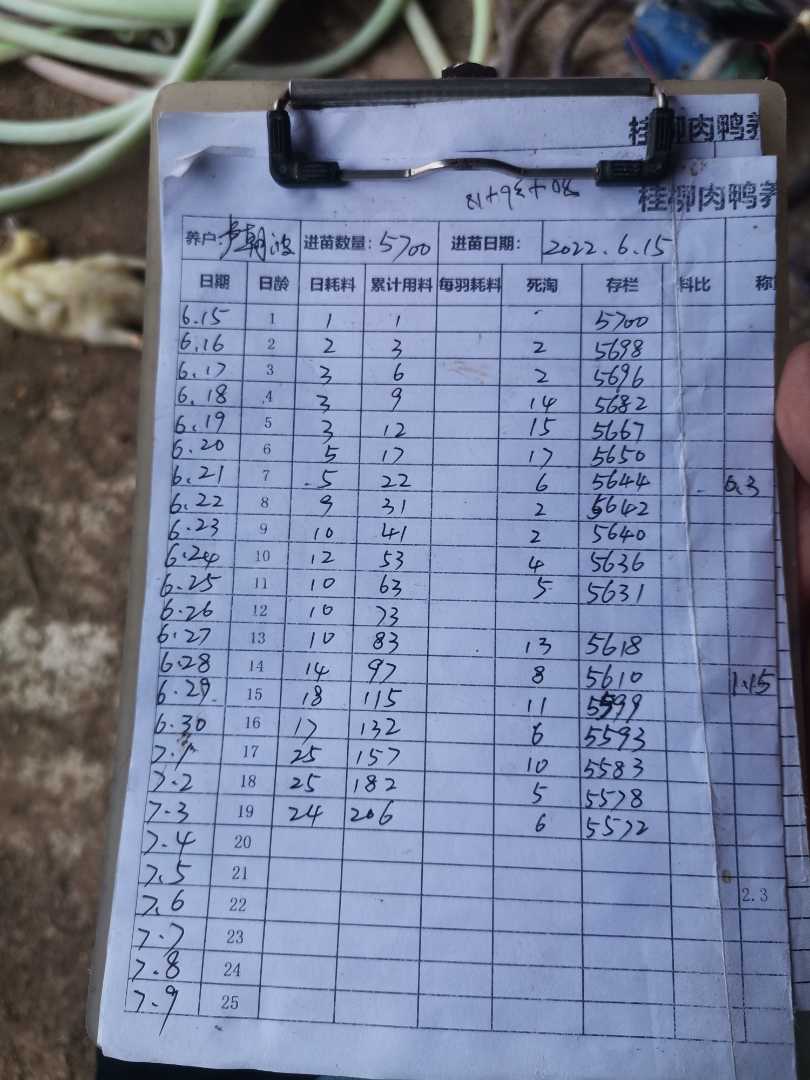 桂柳肉鸭养
桂柳肉鸭养
81+96+80
养户: 朝波 进苗数量: 5700 进苗日期: 2022.6.15
日期 日龄 日耗料 累计用料 每羽耗料 死淘 存栏 料比 称
6.15 1 1 1 5700
6.16 2 2 3 2 5698
6.17 3 3 6 2 5696
6.18 4 3 9 14 5682
6.19 5 3 12 15 5667
6.20 6 5 17 17 5650
6.21 7 5 22 6 5644 0.3
6.22 8 9 31 2 5642
6.23 9 10 41 2 5640
6.24 10 12 53 4 5636
6.25 11 10 63 5 5631
6.26 12 10 73
6.27 13 10 83 13 5618
6.28 14 14 97 8 5610 1.15
6.29 15 18 115 11 5599
6.30 16 17 132 6 5593
7.1 17 25 157 10 5583
7.2 18 25 182 5 5578
7.3 19 24 206 6 5572
7.4 20
7.5 21
7.6 22 2.3
7.7 23
7.8 24
7.9 25